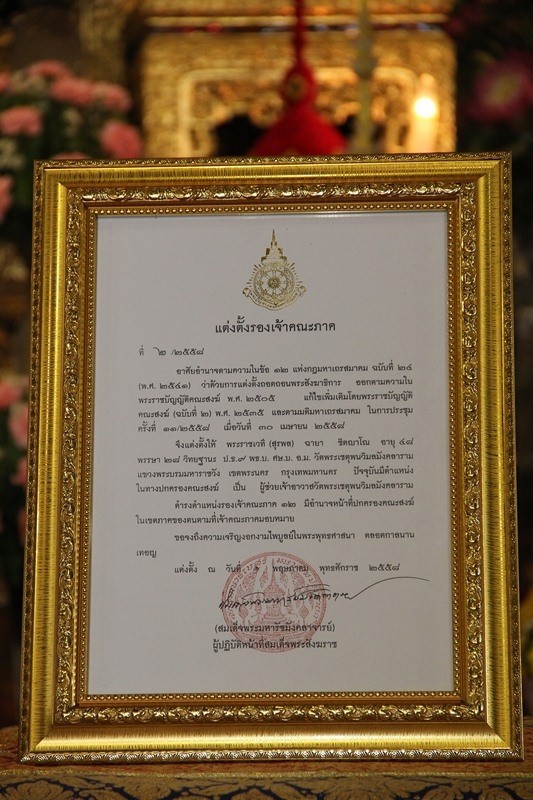 แต่งตั้งรองเจ้าคณะภาค
ที่ ๒ /๒๕๕๘
อาศัยอำนาจตามความในข้อ ๑๒ แห่งกฎมหาเถรสมาคม ฉบับที่ ๒๔
(พ.ศ. ๒๕๔๑) ว่าด้วยการแต่งตั้งถอดถอนพระสังฆาธิการ ออกตามความใน
พระราชบัญญัติคณะสงฆ์ พ.ศ. ๒๕๐๕ แก้ไขเพิ่มเติมโดยพระราชบัญญัติ
คณะสงฆ์ (ฉบับที่ ๒) พ.ศ. ๒๕๓๕ และตามมติมหาเถรสมาคม ในการประชุม
ครั้งที่ ๑๑/๒๕๕๘ เมื่อวันที่ ๓๐ เมษายน ๒๕๕๘
จึงแต่งตั้งให้ พระราชเวที (สุรพล) ฉายา ชิตญาโณ อายุ ๔๘
พรรษา ๒๘ วิทยฐานะ ป.ธ.๙ พธ.บ. ศษ.บ. อ.ม. วัดพระเชตุพนวิมลมังคลาราม
แขวงพระบรมมหาราชวัง เขตพระนคร กรุงเทพมหานคร ปัจจุบันมีตำแหน่ง
ในทางปกครองคณะสงฆ์ เป็น ผู้ช่วยเจ้าอาวาสวัดพระเชตุพนวิมลมังคลาราม
ดำรงตำแหน่งรองเจ้าคณะภาค ๑๒ มีอำนาจหน้าที่ปกครองคณะสงฆ์
ในเขตภาคของตนตามที่เจ้าคณะภาคมอบหมาย
ขอจงถึงความเจริญงอกงามไพบูลย์ในพระพุทธศาสนา ตลอดกาลนาน
เทอญ
แต่งตั้ง ณ วันที่ ๑ พฤษภาคม พุทธศักราช ๒๕๕๘
(สมเด็จพระมหารัชมังคลาจารย์)
ผู้ปฏิบัติหน้าที่สมเด็จพระสังฆราช